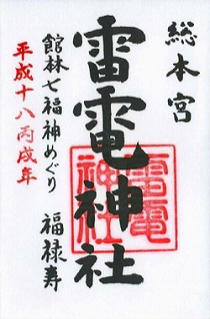 総本宮
雷電神社
雷電
神社
館林七福神めぐり 福禄寿
平成十八丙戌年